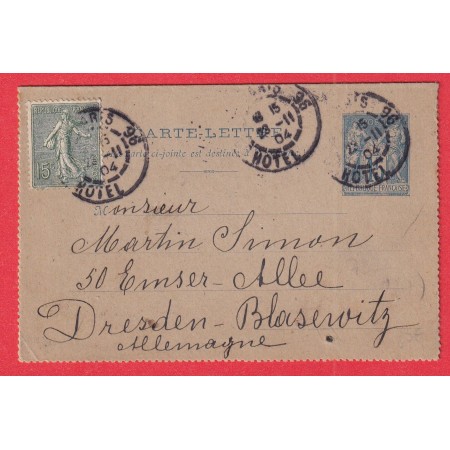 CARTE-LETTRE
Carte ci-jointe est destinée à
PARIS 96
15
11
04
HOTEL
PARIS 96
8 15
25 -11
04
HOTEL
PARIS 96
15
11
04
HOTEL
15c
REPUBLIQUE FRANÇAISE
Monsieur
Martin Simon
50 Emser-Allee
Dresden-Blasewitz
Allemagne